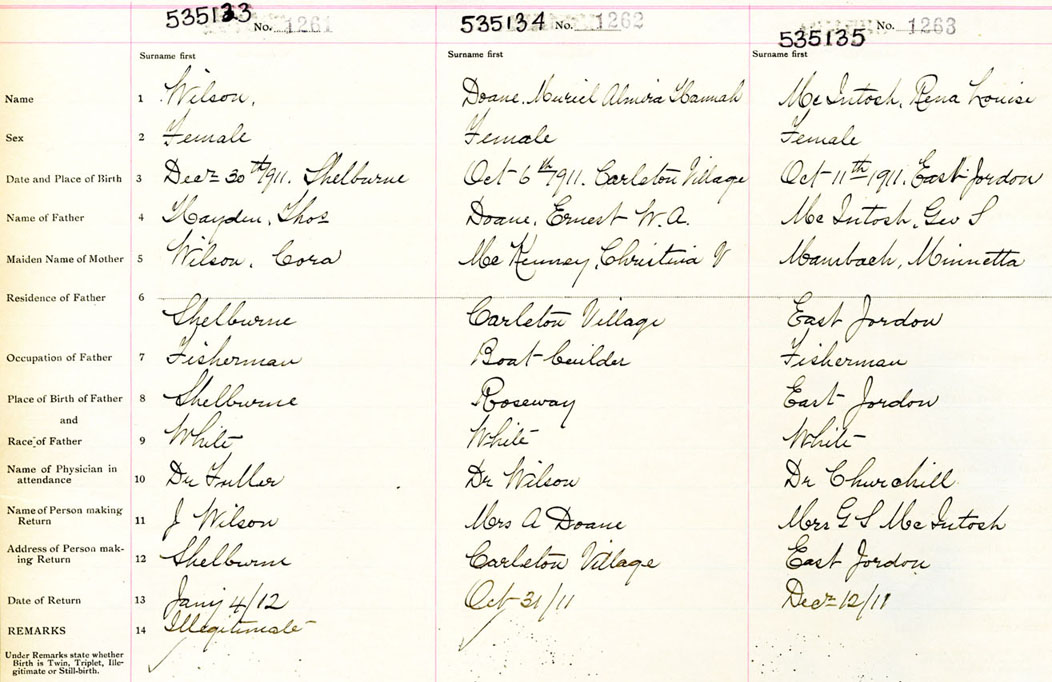 535133 No. 1261 535134 No. 1262 535135 No. 1263
Surname first Surname first Surname first
Name 1 Wilson, Doane, Muriel Almira Hannah McIntosh, Rena Louise
Sex 2 Female Female Female
Date and Place of Birth 3 Decr 30th 1911. Shelburne Oct 6th 1911. Carleton Village Oct 11th 1911. East Jordon
Name of Father 4 Hayden, Thos Doane, Ernest W. A. McIntosh, Geo S
Maiden Name of Mother 5 Wilson, Cora McKenney, Christina V Mansbach, Minnetta
Residence of Father 6 Shelburne Carleton Village East Jordon
Occupation of Father 7 Fisherman Boat-builder Fisherman
Place of Birth of Father 8 Shelburne Roseway East Jordon
and
Race of Father 9 White White White
Name of Physician in
attendance 10 Dr Fuller Dr Wilson Dr Churchill
Name of Person making
Return 11 J Wilson Mrs A Doane Mrs G S McIntosh
Address of Person mak-
ing Return 12 Shelburne Carleton Village East Jordon
Date of Return 13 Jany 4/12 Oct 31/11 Decr 12/11
REMARKS 14 Illegitimate
Under Remarks state whether
Birth is Twin, Triplet, Ille-
gitimate or Still-birth.